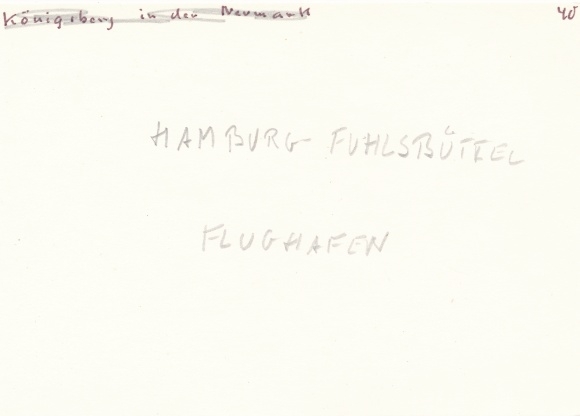 Königsberg in der Neumark 40
HAMBURG-FUHLSBÜTTEL
FLUGHAFEN